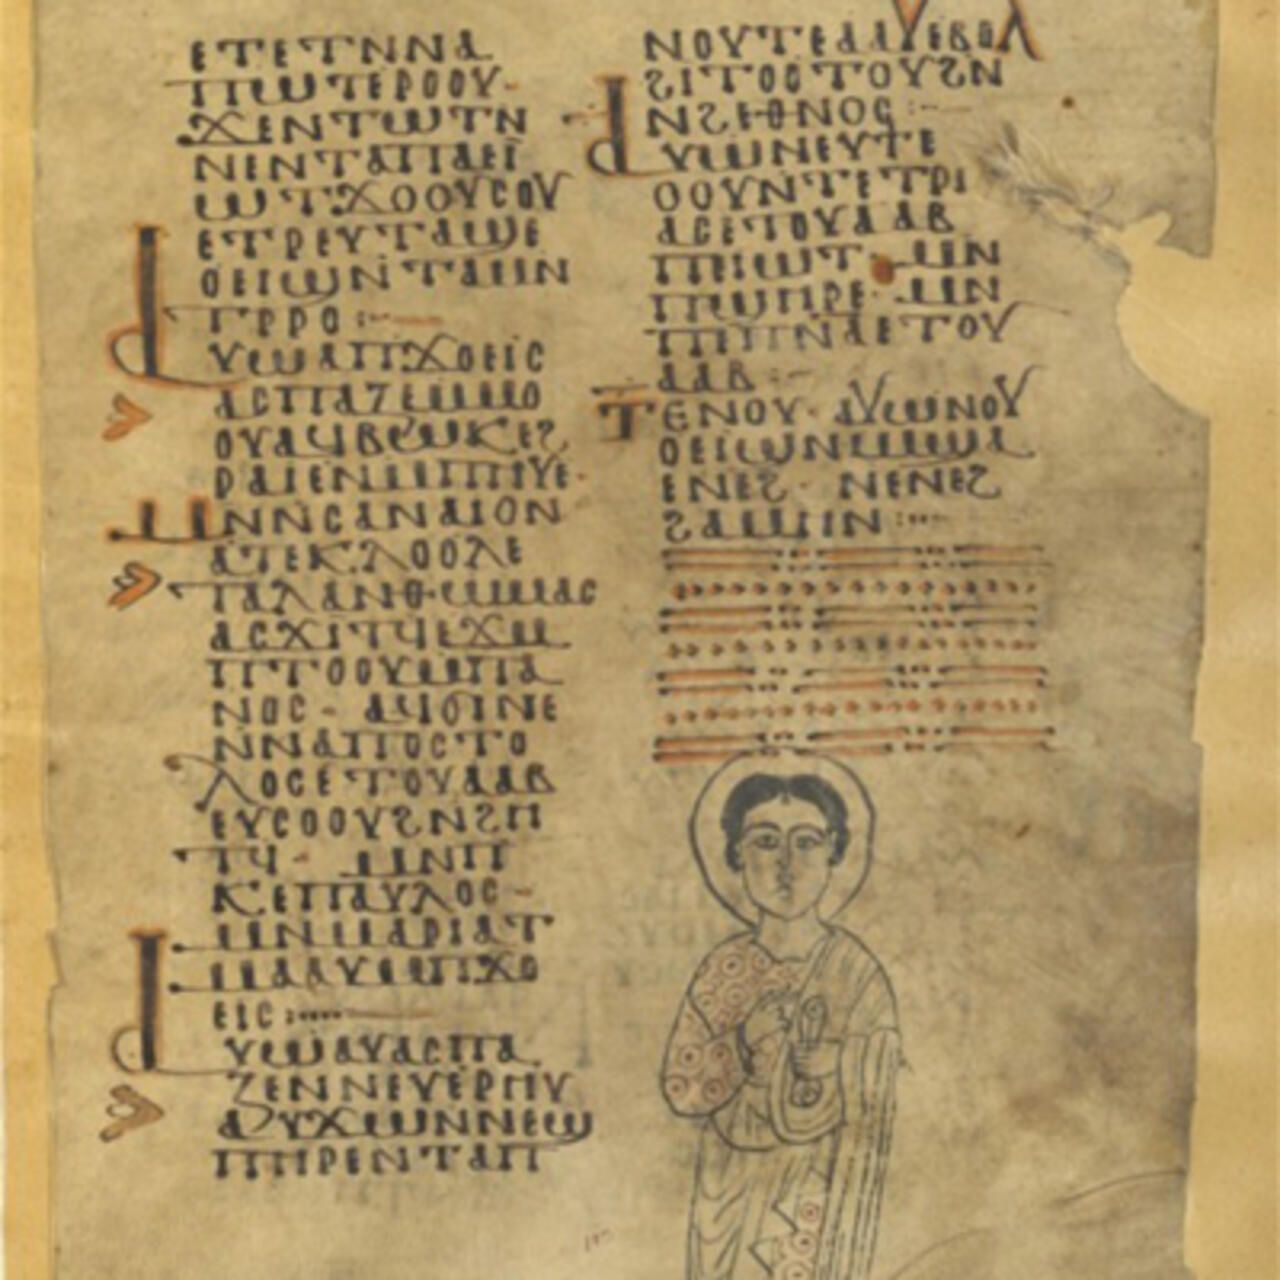 ⲉⲧⲉⲧⲛⲛⲁ
ⲡⲱⲧⲉⲣⲟⲟⲩ·
ϫⲉⲛⲧⲱⲧⲛ
ⲛⲉⲛⲧⲁⲡⲁⲉⲓ
ⲱⲧϫⲟⲟⲩⲥⲟⲩ
ⲉⲧⲣⲉⲩⲧⲁϣⲉ
ⲟⲉⲓϣⲛⲧⲙⲛ
ⲧⲣⲣⲟ:
ⲁⲩⲱⲁⲡϫⲟⲉⲓⲥ
ⲁⲥⲡⲁⲍⲉⲙⲙⲟ
ⲟⲩⲁϥⲃⲱⲕⲉϩ
ⲣⲁⲓⲉⲛⲙⲡⲏⲩⲉ·
ⲙⲛⲛⲥⲁⲛⲁⲓⲟⲛ
ⲁⲧⲉⲕⲗⲟⲟⲗⲉ
ⲧⲁⲗⲁⲛⲑⲱⲙⲁⲥ
ⲁⲥϫⲓⲧϥⲉϫⲙ
ⲡⲧⲟⲟⲩⲙⲡⲁ
ⲛⲟⲥ· ⲁϥϭⲓⲛⲉ
ⲛⲛⲁⲡⲟⲥⲧⲟ
ⲗⲟⲥⲉⲧⲟⲩⲁⲁⲃ
ⲉⲩⲥⲟⲟⲩϩⲛϩⲏ
ⲧϥ· ⲙⲛⲡ
ⲕⲉⲡⲁⲩⲗⲟⲥ·
ⲙⲛⲙⲁⲣⲓⲁⲧ
ⲙⲁⲁⲩⲙⲡϫⲟ
ⲉⲓⲥ:
ⲁⲩⲱⲁⲩⲁⲥⲡⲁ
ⲍⲉⲛⲛⲉⲩⲉⲣⲏⲩ
ⲁⲩϫⲱⲛⲛⲉϣ
ⲡⲏⲣⲉⲛⲧⲁⲡ
ⲛⲟⲩⲧⲉⲁⲁⲩⲉⲃⲟⲗ
ϩⲓⲧⲟⲟⲧⲟⲩϩⲛ
ⲛϩⲉⲑⲛⲟⲥ:
ⲁⲩⲱⲛⲉⲩϯⲉ
ⲟⲟⲩⲛⲧⲉⲧⲣⲓ
ⲁⲥⲉⲧⲟⲩⲁⲁⲃ
ⲡⲉⲓⲱⲧ· ⲙⲛ
ⲡϣⲏⲣⲉ· ⲙⲛ
ⲡⲉⲡⲛⲁⲉⲧⲟⲩ
ⲁⲁⲃ:
ⲧⲉⲛⲟⲩ· ⲁⲩⲱⲛⲟⲩ
ⲟⲉⲓϣⲛⲓⲙϣⲁ
ⲉⲛⲉϩ· ⲛⲉⲛⲉϩ
ϩⲁⲙⲏⲛ: